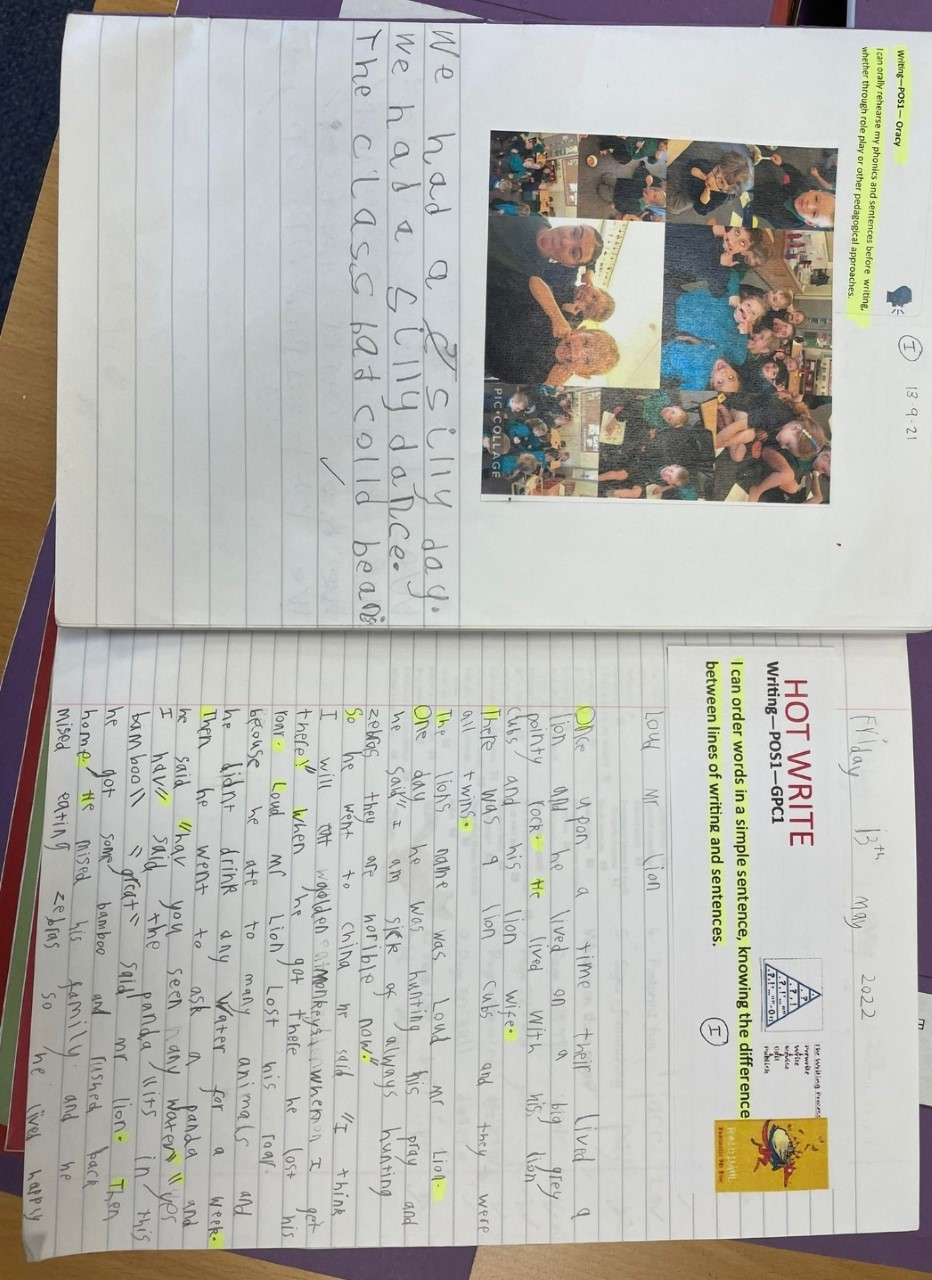 13.9.21
I
Writing—POS1— Oracy
I can orally rehearse my phonics and sentences before writing,
whether through role play or other pedagogical approaches.
PIC•COLLAGE
We had a silly day.
We had a silly dance.
The cllass had colld beans
Friday 13th may 2022
HOT WRITE
Writing—POS1—GPC1
I can order words in a simple sentence, knowing the difference
between lines of writing and sentences.
I
The Writing Process
Prewrite
Write
Revise
Edit
Publish
ROALD DAHL
Fantastic Mr Fox
Loud Mr Lion
Once upon a time their lived a
lion and he lived on a big grey
pointy rock. He lived with his lion
cubs and his lion wife.
There was 9 lion cubs and they were
all twins.
The lions name was Loud mr Lion.
One day he was hunting his pray and
he said" I am sick of always hunting
zebras they are horible now."
So he went to china he said "I think
I will eat when I get
there!" When he got there he lost his
roar. Loud mr Lion Lost his roar
becouse he ate to many animals and
he didnt drink any water for a week.
Then he went to ask a panda and
he said "hav you seen any water" "yes
I hav" said the panda "its in this
bamboo" "great" said mr lion. Then
he got some bamboo and rushed back
home. He mised his family and he
mised eating zebras so he lived happy